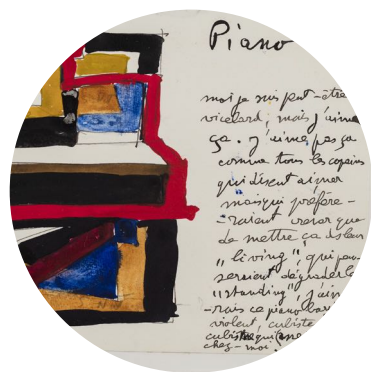 Piano
moi je suis peut-être
vicelard, mais j'aime
ça. j'aime pas ça
comme tous les copains
qui disent aimer
mais qui préfère-
-raient crever que
de mettre ça ds leur
"living", qui pen
seraient dégrader le
"standing", j'aim
-rais ce piano bar
violent, cubiste
cubiste qui
chez-moi